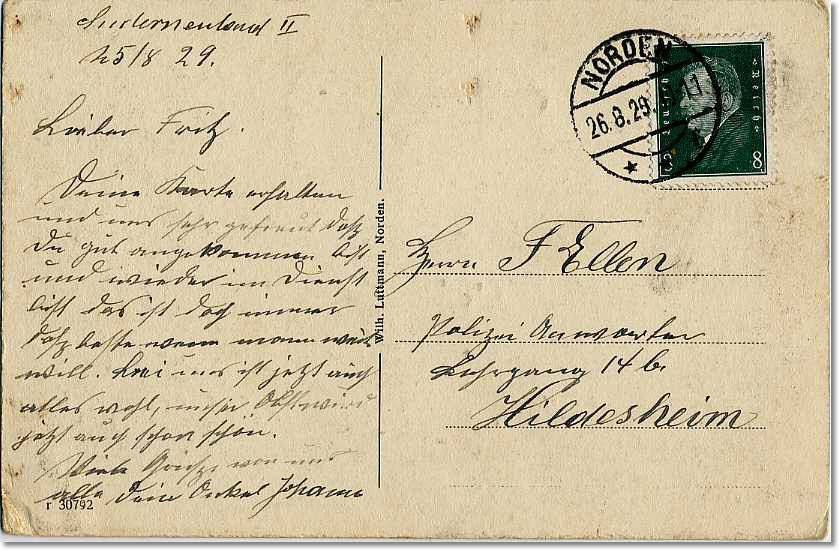 Süderneuland II
25/8 29.
Lieber Fritz.
Deine Karte erhalten
und uns sehr gefreut daß
Du gut angekommen bist
und wieder im Dienst
bist das ist doch immer
daß beste wenn mann
will. bei uns ist jetzt auch
alles wohl, unser Obst wird
jetzt auch schon schön.
Viele Grüße von uns
alle Dein Onkel Johann
r 30792
Wilh. Luttmann, Norden.
NORDEN
26.8.29
Deutsches Reich
8
Herrn F Ellen
Polizei Anwärter
Lehrgang 14 b.
Hildesheim